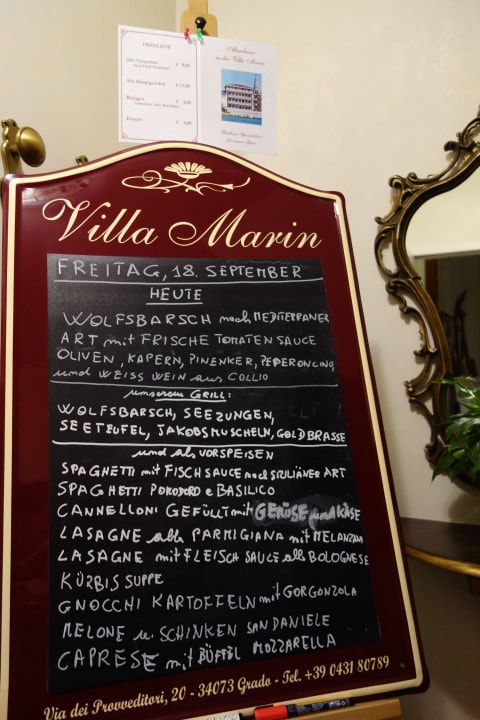 PREISLISTE
Alle Vorspeisen € 9,00
Alle Hauptgerichte
Beilagen € 4,00
Dessert € 4,00
in der Villa Marin
Villa Marin
FREITAG, 18. SEPTEMBER
HEUTE
WOLFSBARSCH nach MEDITERRANER
ART mit FRISCHE TOMATEN SAUCE
OLIVEN, KAPERN, PINENKER, PEPERONCINO,
und WEISS WEIN aus COLLIO
unserem GRILL:
WOLFSBARSCH, SEEZUNGEN,
SEETEUFEL, JAKOBSMUSCHELN, GOLDBRASSE
und als VORSPEISEN
SPAGHETTI mit FISCH SAUCE nach SIZILIÄNER ART
SPAGHETTI POMODORO e BASILICO
CANNELLONI GEFÜLLT mit GEMÜSE und KÄSE
LASAGNE alla PARMIGIANA mit MELANZANA
LASAGNE mit FLEISCH SAUCE alla BOLOGNESE
KÜRBIS SUPPE
GNOCCHI KARTOFFELN mit GORGONZOLA
MELONE u. SCHINKEN SAN DANIELE
CAPRESE mit BÜFFEL MOZZARELLA
Via dei Provveditori, 20 - 34073 Grado - Tel. +39 0431 80789